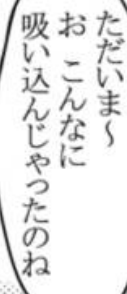 ただいま～
お こんなに
吸い込んじゃったのね